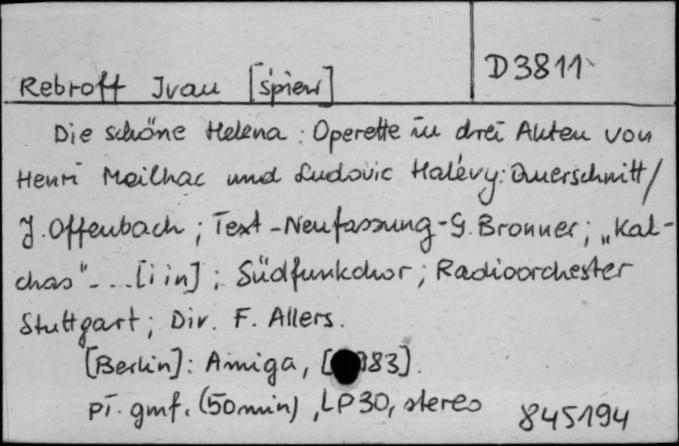 D3811
Rebroff Ivan [śpiew]
Die schöne Helena : Operette in drei Akten von
Henri Meilhac und Ludovic Halévy : Querschnitt /
J. Offenbach ; Text-Neufassung - G. Bronner ; „Kal-
chas" - ... [i in] ; Südfunkchor ; Radioorchester
Stuttgart ; Dir. F. Allers.
[Berlin] : Amiga, [983].
pł. gmf. (50 min), LP30, stereo
845194